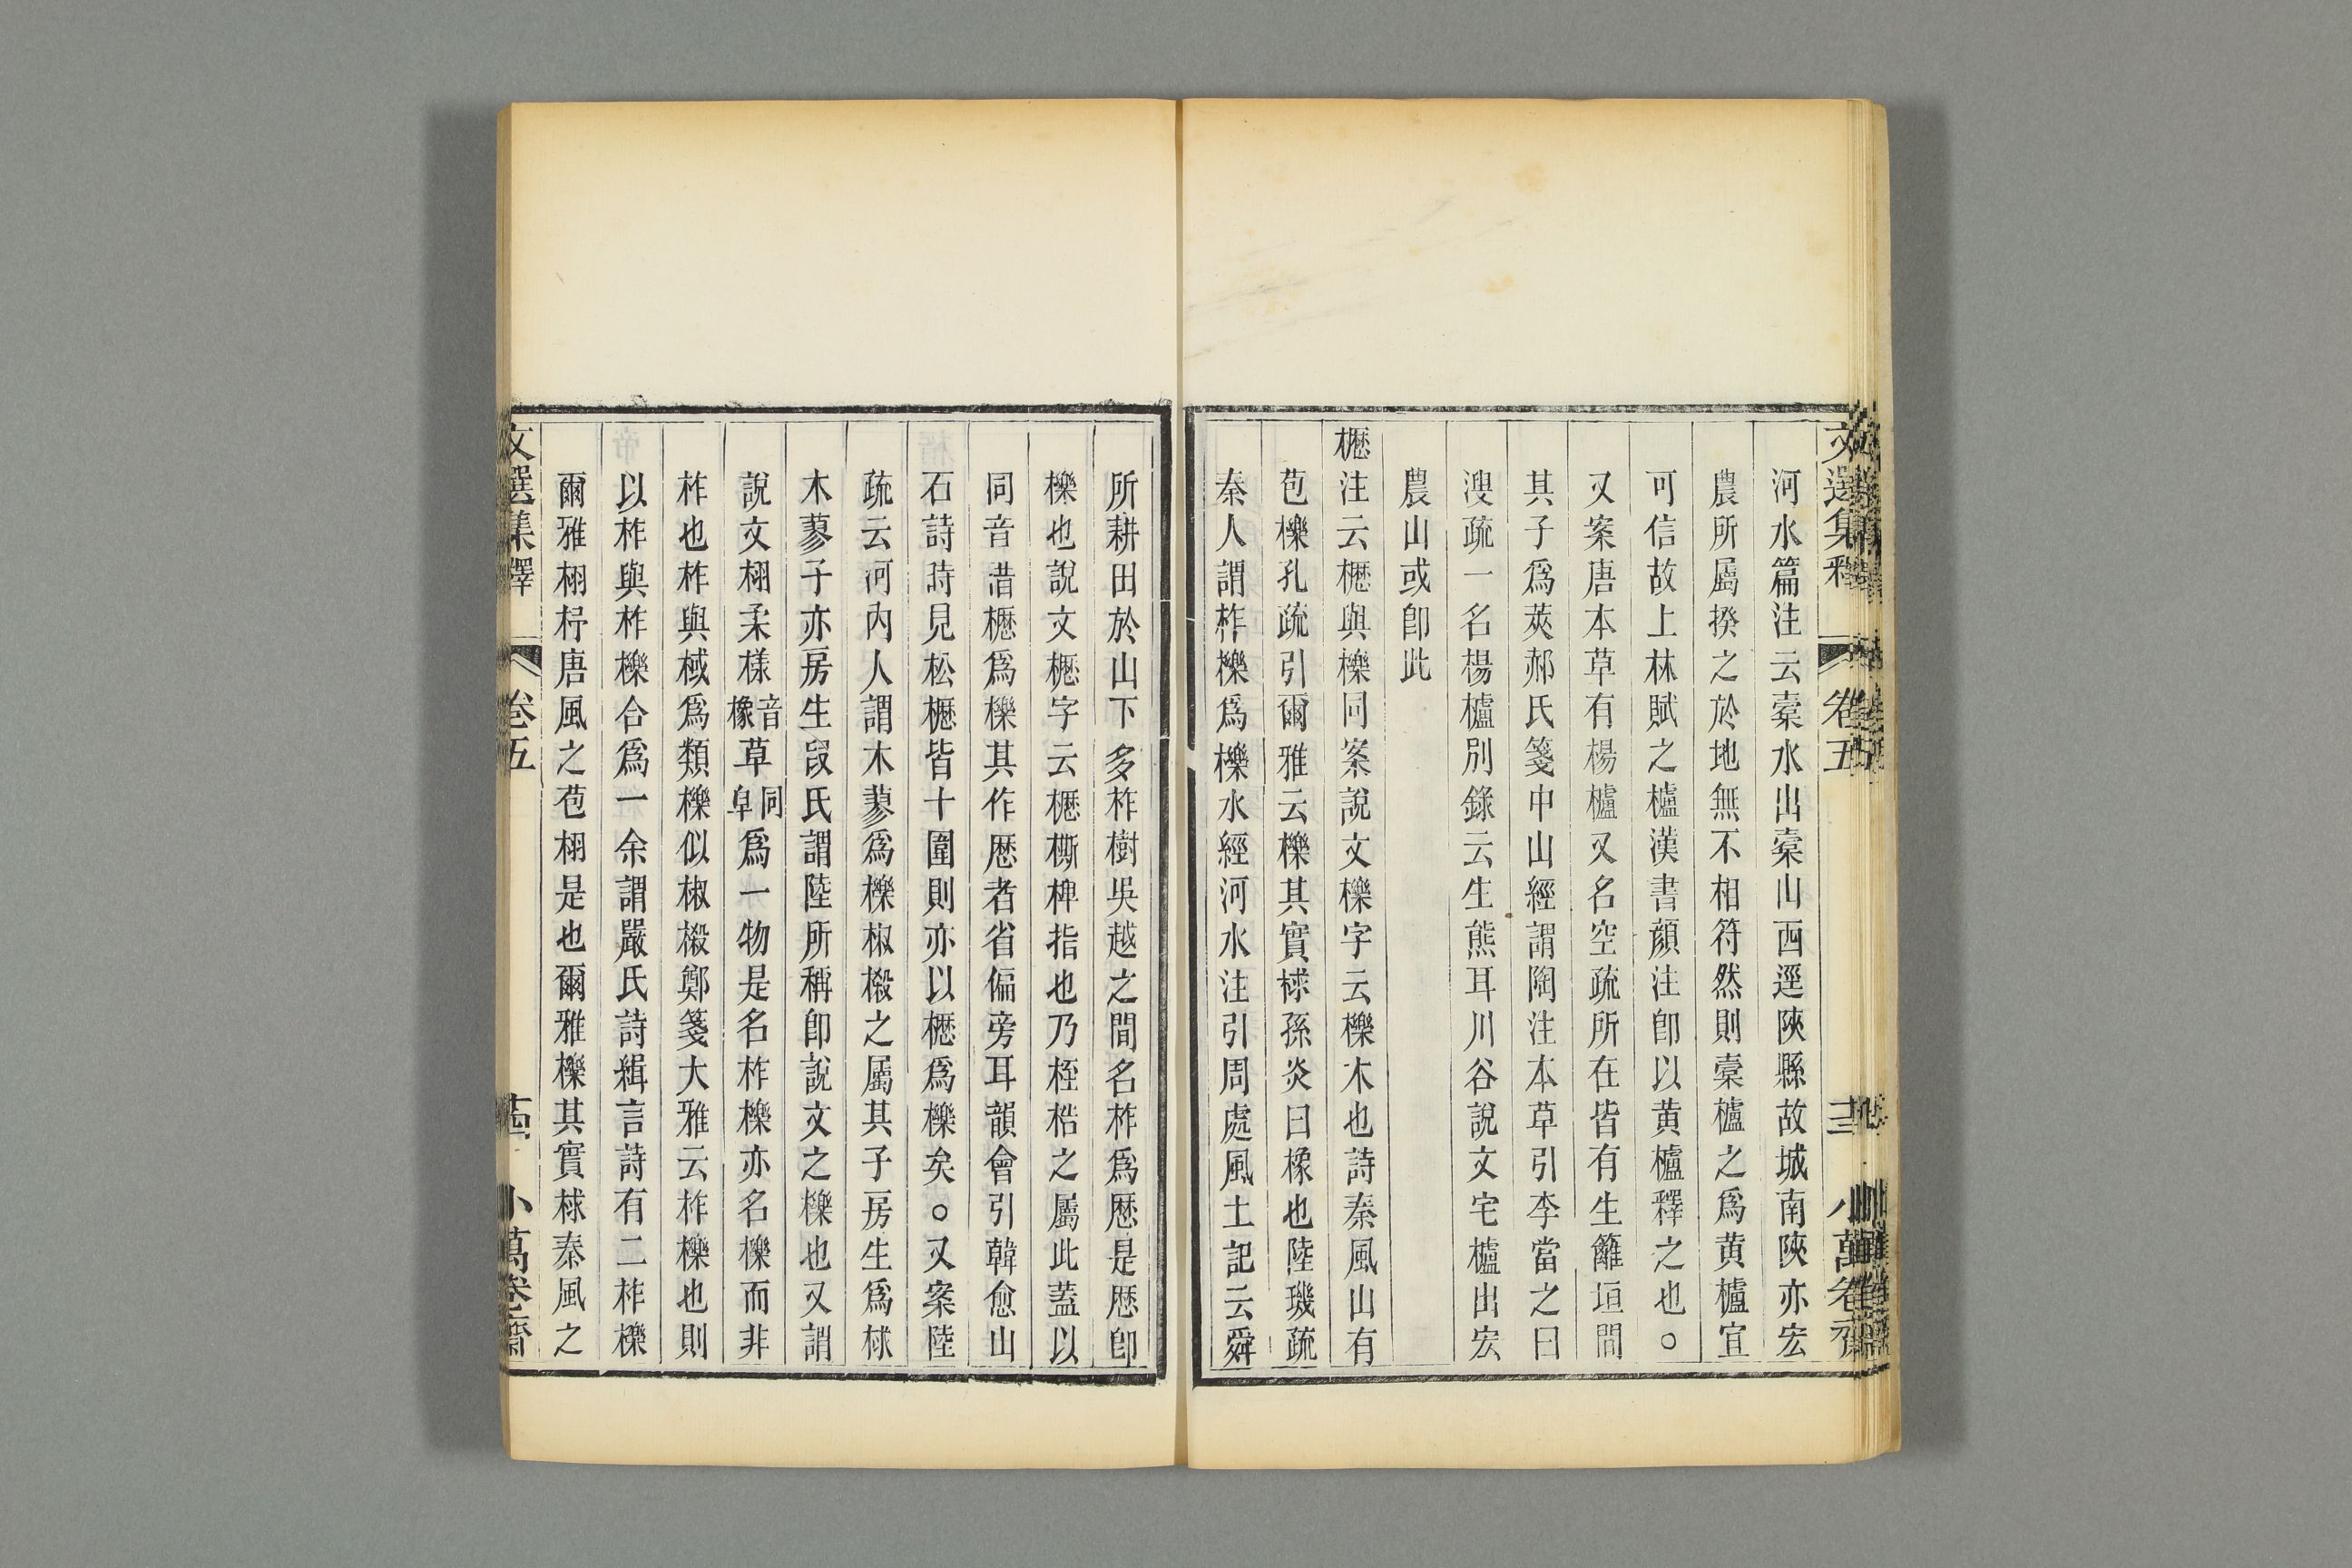 文選集釋 卷五 小萬卷齋
河水篇注云槖水出槖山西逕陝縣故城南陝亦宏
農所屬揆之於地無不相符然則槖櫨之爲黄櫨宜
可信故上林賦之櫨漢書顔注卽以黄櫨釋之也○
又案唐本草有楊櫨又名空疏所在皆有生籬垣間
其子爲莢郝氏箋中山經謂陶注本草引李當之曰
溲疏一名楊櫨別錄云生熊耳川谷說文宅櫨出宏
農山或卽此
櫪注云櫪與櫟同案說文櫟字云櫟木也詩秦風山有
苞櫟孔疏引爾雅云櫟其實梂孫炎曰橡也陸璣疏
秦人謂柞櫟爲櫟水經河水注引周處風土記云舜
所耕田於山下多柞樹吳越之間名柞爲厯是厯卽
櫟也說文櫪字云櫪㯕椑指也乃桎梏之屬此蓋以
同音借櫪爲櫟其作厯者省偏旁耳韻會引韓愈山
石詩時見松櫪皆十圍則亦以櫪爲櫟矣○又案陸
疏云河內人謂木蓼爲櫟椒樧之屬其子房生爲梂
木蓼子亦房生段氏謂陸所稱卽說文之櫟也又謂
說文栩柔樣音橡草同阜爲一物是名柞櫟亦名櫟而非
柞也柞與棫爲類櫟似椒樧鄭箋大雅云柞櫟也則
以柞與柞櫟合爲一余謂嚴氏詩緝言詩有二柞櫟
爾雅栩杼唐風之苞栩是也爾雅櫟其實梂秦風之
文選集釋 卷五 小萬卷齋